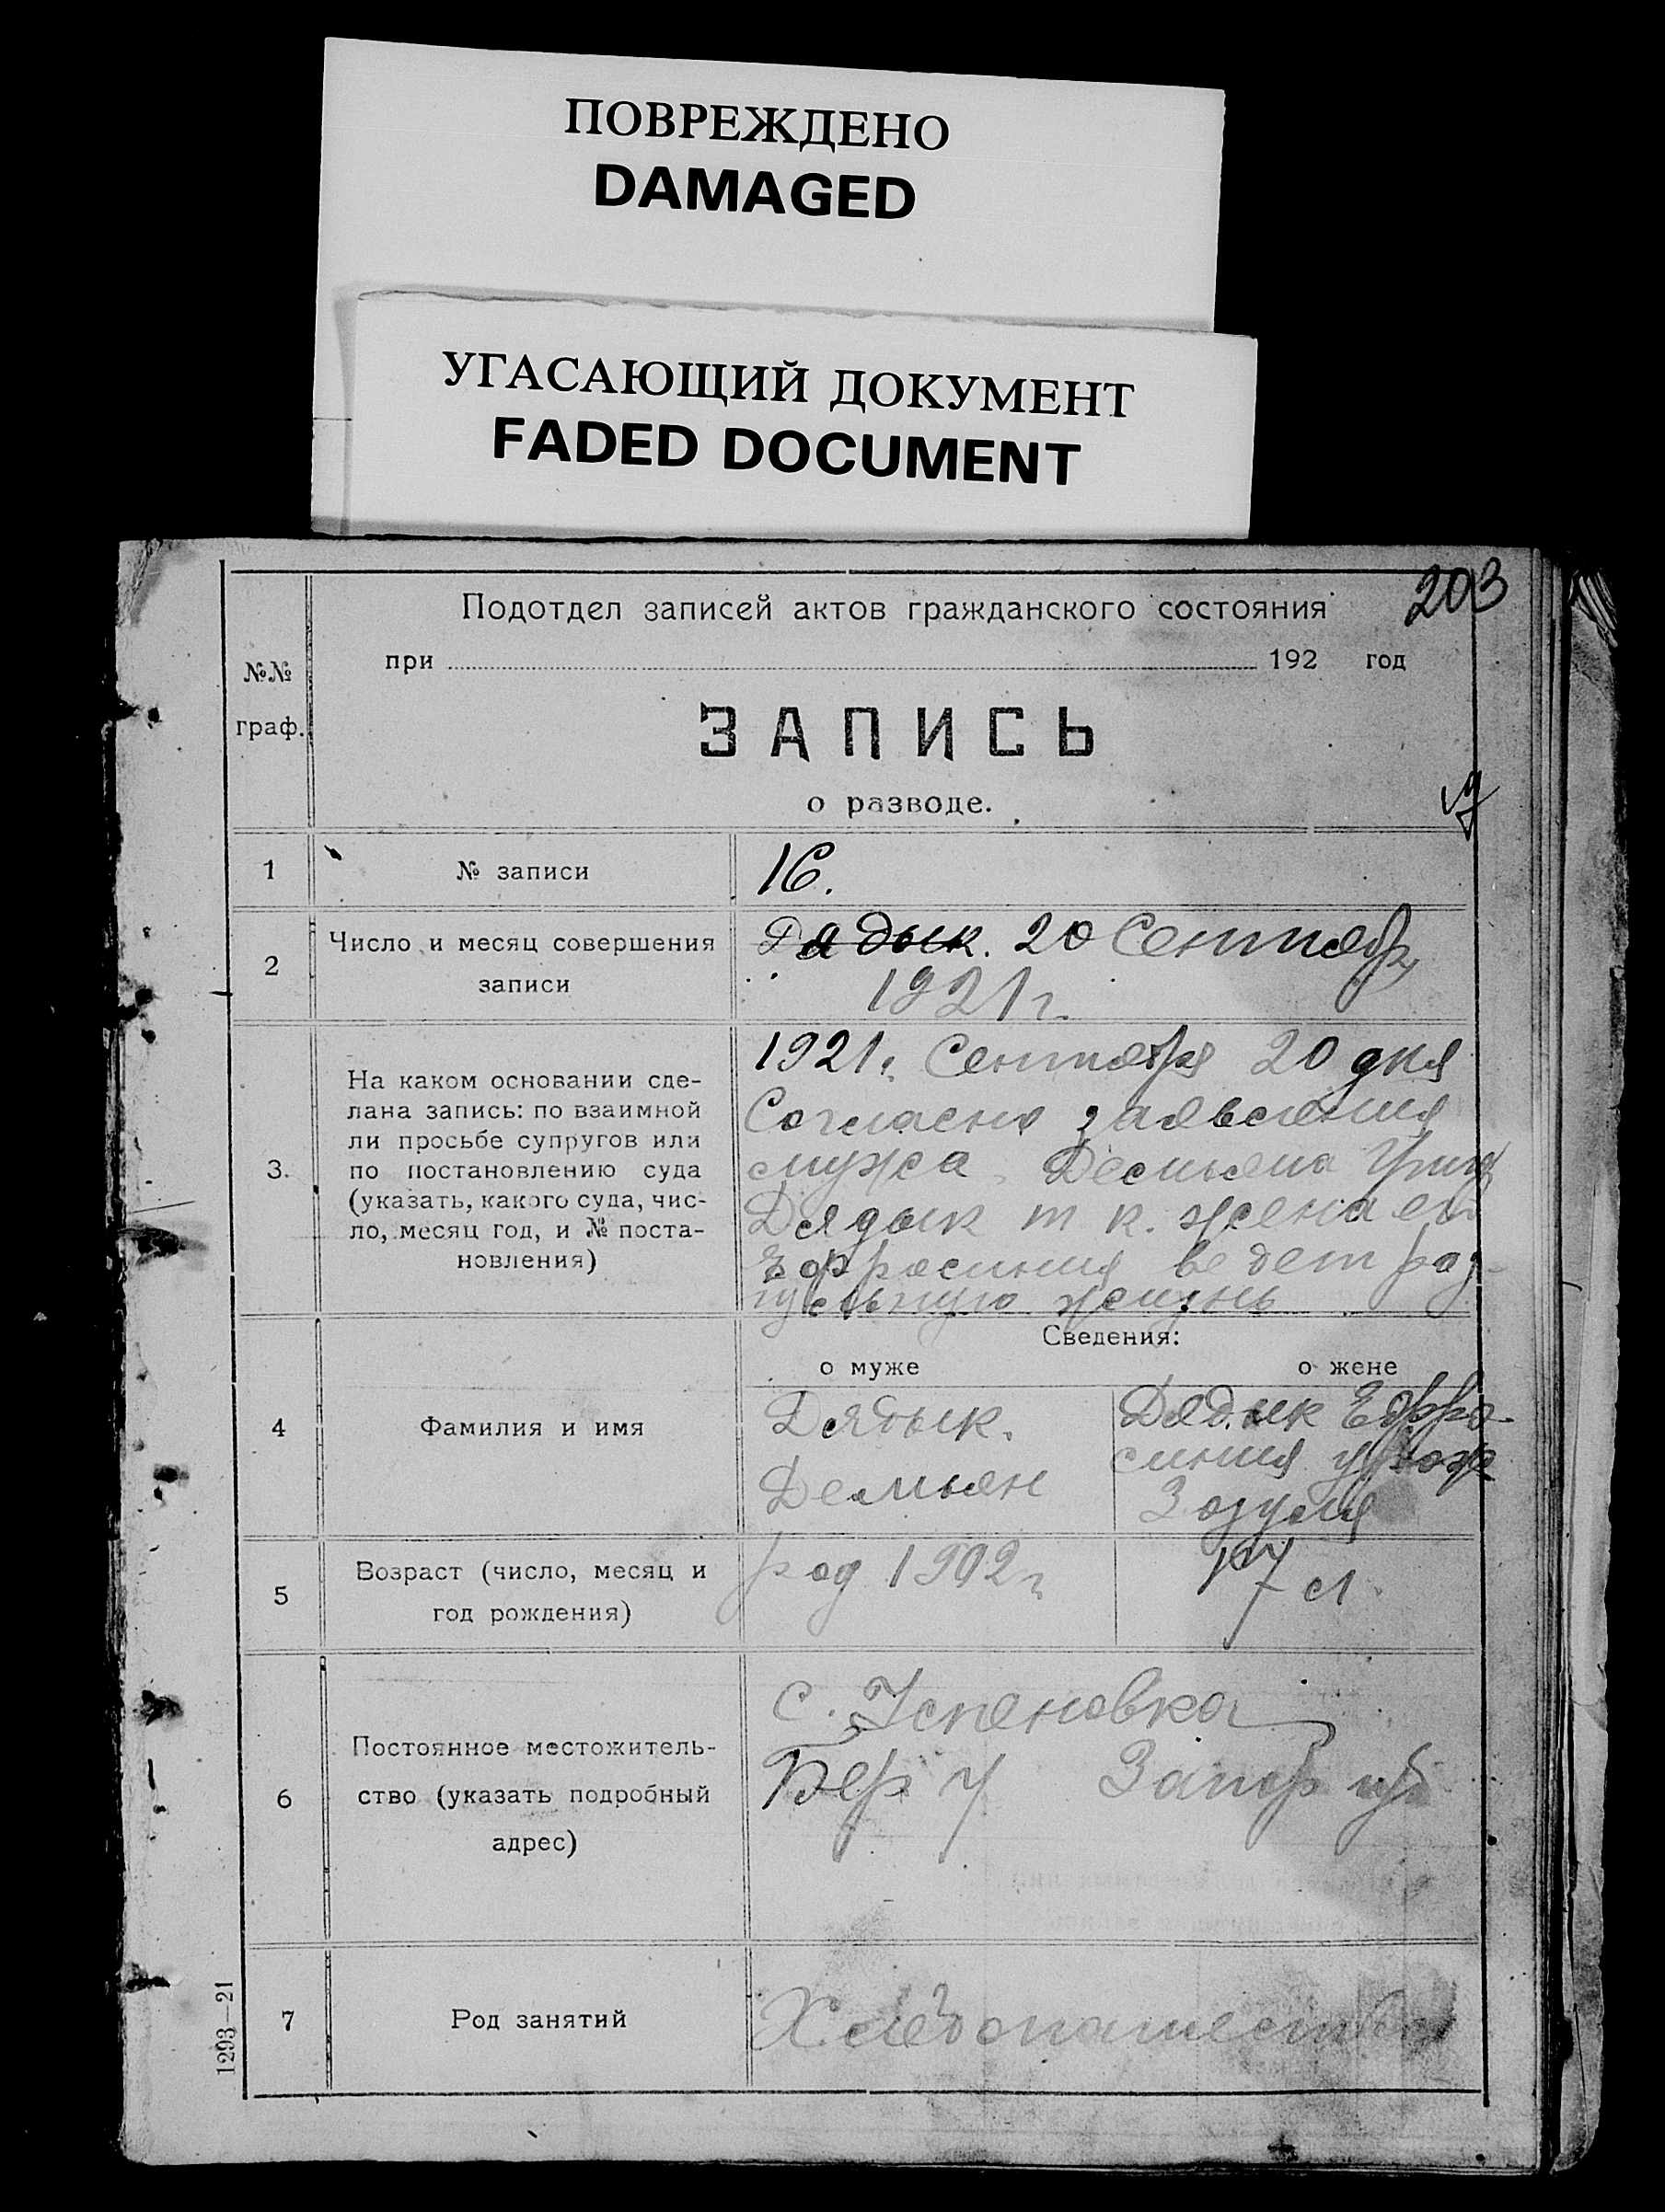 ПОВРЕЖДЕНО
DAMAGED
УГАСАЮЩИЙ ДОКУМЕНТ
FADED DOCUMENT
203
Подотдел записей актов гражданского состояния
при 192 год
№№
граф.
ЗАПИСЬ
о разводе.
1 № записи 16.
2 Число и месяц совершения
записи
Дядык. 20 Сентябр
1921 г.
3. На каком основании сде-
лана запись: по взаимной
ли просьбе супругов или
по постановлению суда
(указать, какого суда, чис-
ло, месяц год, и № поста-
новления)
1921 г. Сентября 20 дня
Согласно заявления
мужа Демьяна Григ
Дядык т к. жена его
Эфросиния ведет раз-
гульную жизнь
Сведения:
о муже о жене
4 Фамилия и имя
Дядык.
Демьян
Дядык Ефро-
синия урож
Зозуля
5 Возраст (число, месяц и
год рождения)
род 1902 г
17 л.
6 Постоянное местожитель-
ство (указать подробный
адрес)
с. Успеновка
Бер у Запор губ
7 Род занятий Хлебопашество
1293—21